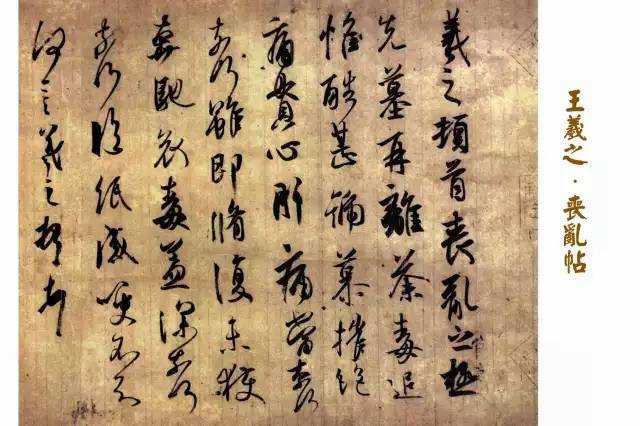 羲之頓首喪亂之極
先墓再離荼毒追
惟酷甚號慕摧絕
痛貫心肝痛當奈何
奈何雖即脩復未獲
奔馳哀毒益深奈何
奈何臨紙感哽不知
何言羲之頓首
王羲之·喪亂帖